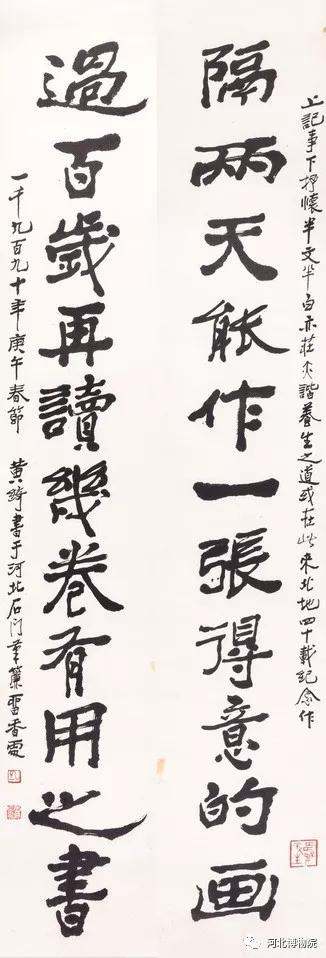 上記事下抒懷半文半白亦莊亦諧養生之道或在此來北地四十載紀念作
隔兩天能作一張得意的画
過百歲再讀幾卷有用之書
一千九百九十年庚午春節 黄綺書于河北石门重簾畱香處
河北博物院